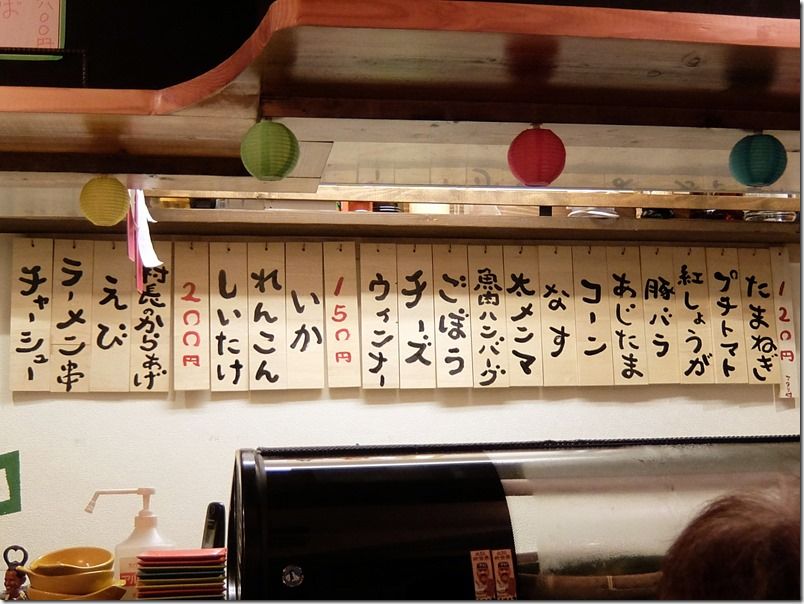 120円
たまねぎ
プチトマト
紅しょうが
豚バラ
あじたま
コーン
なす
大メンマ
魚肉ハンバーグ
ごぼう
チーズ
ウィンナー
150円
いか
れんこん
しいたけ
200円
村長のからあげ
えび
ラーメン串
チャーシュー